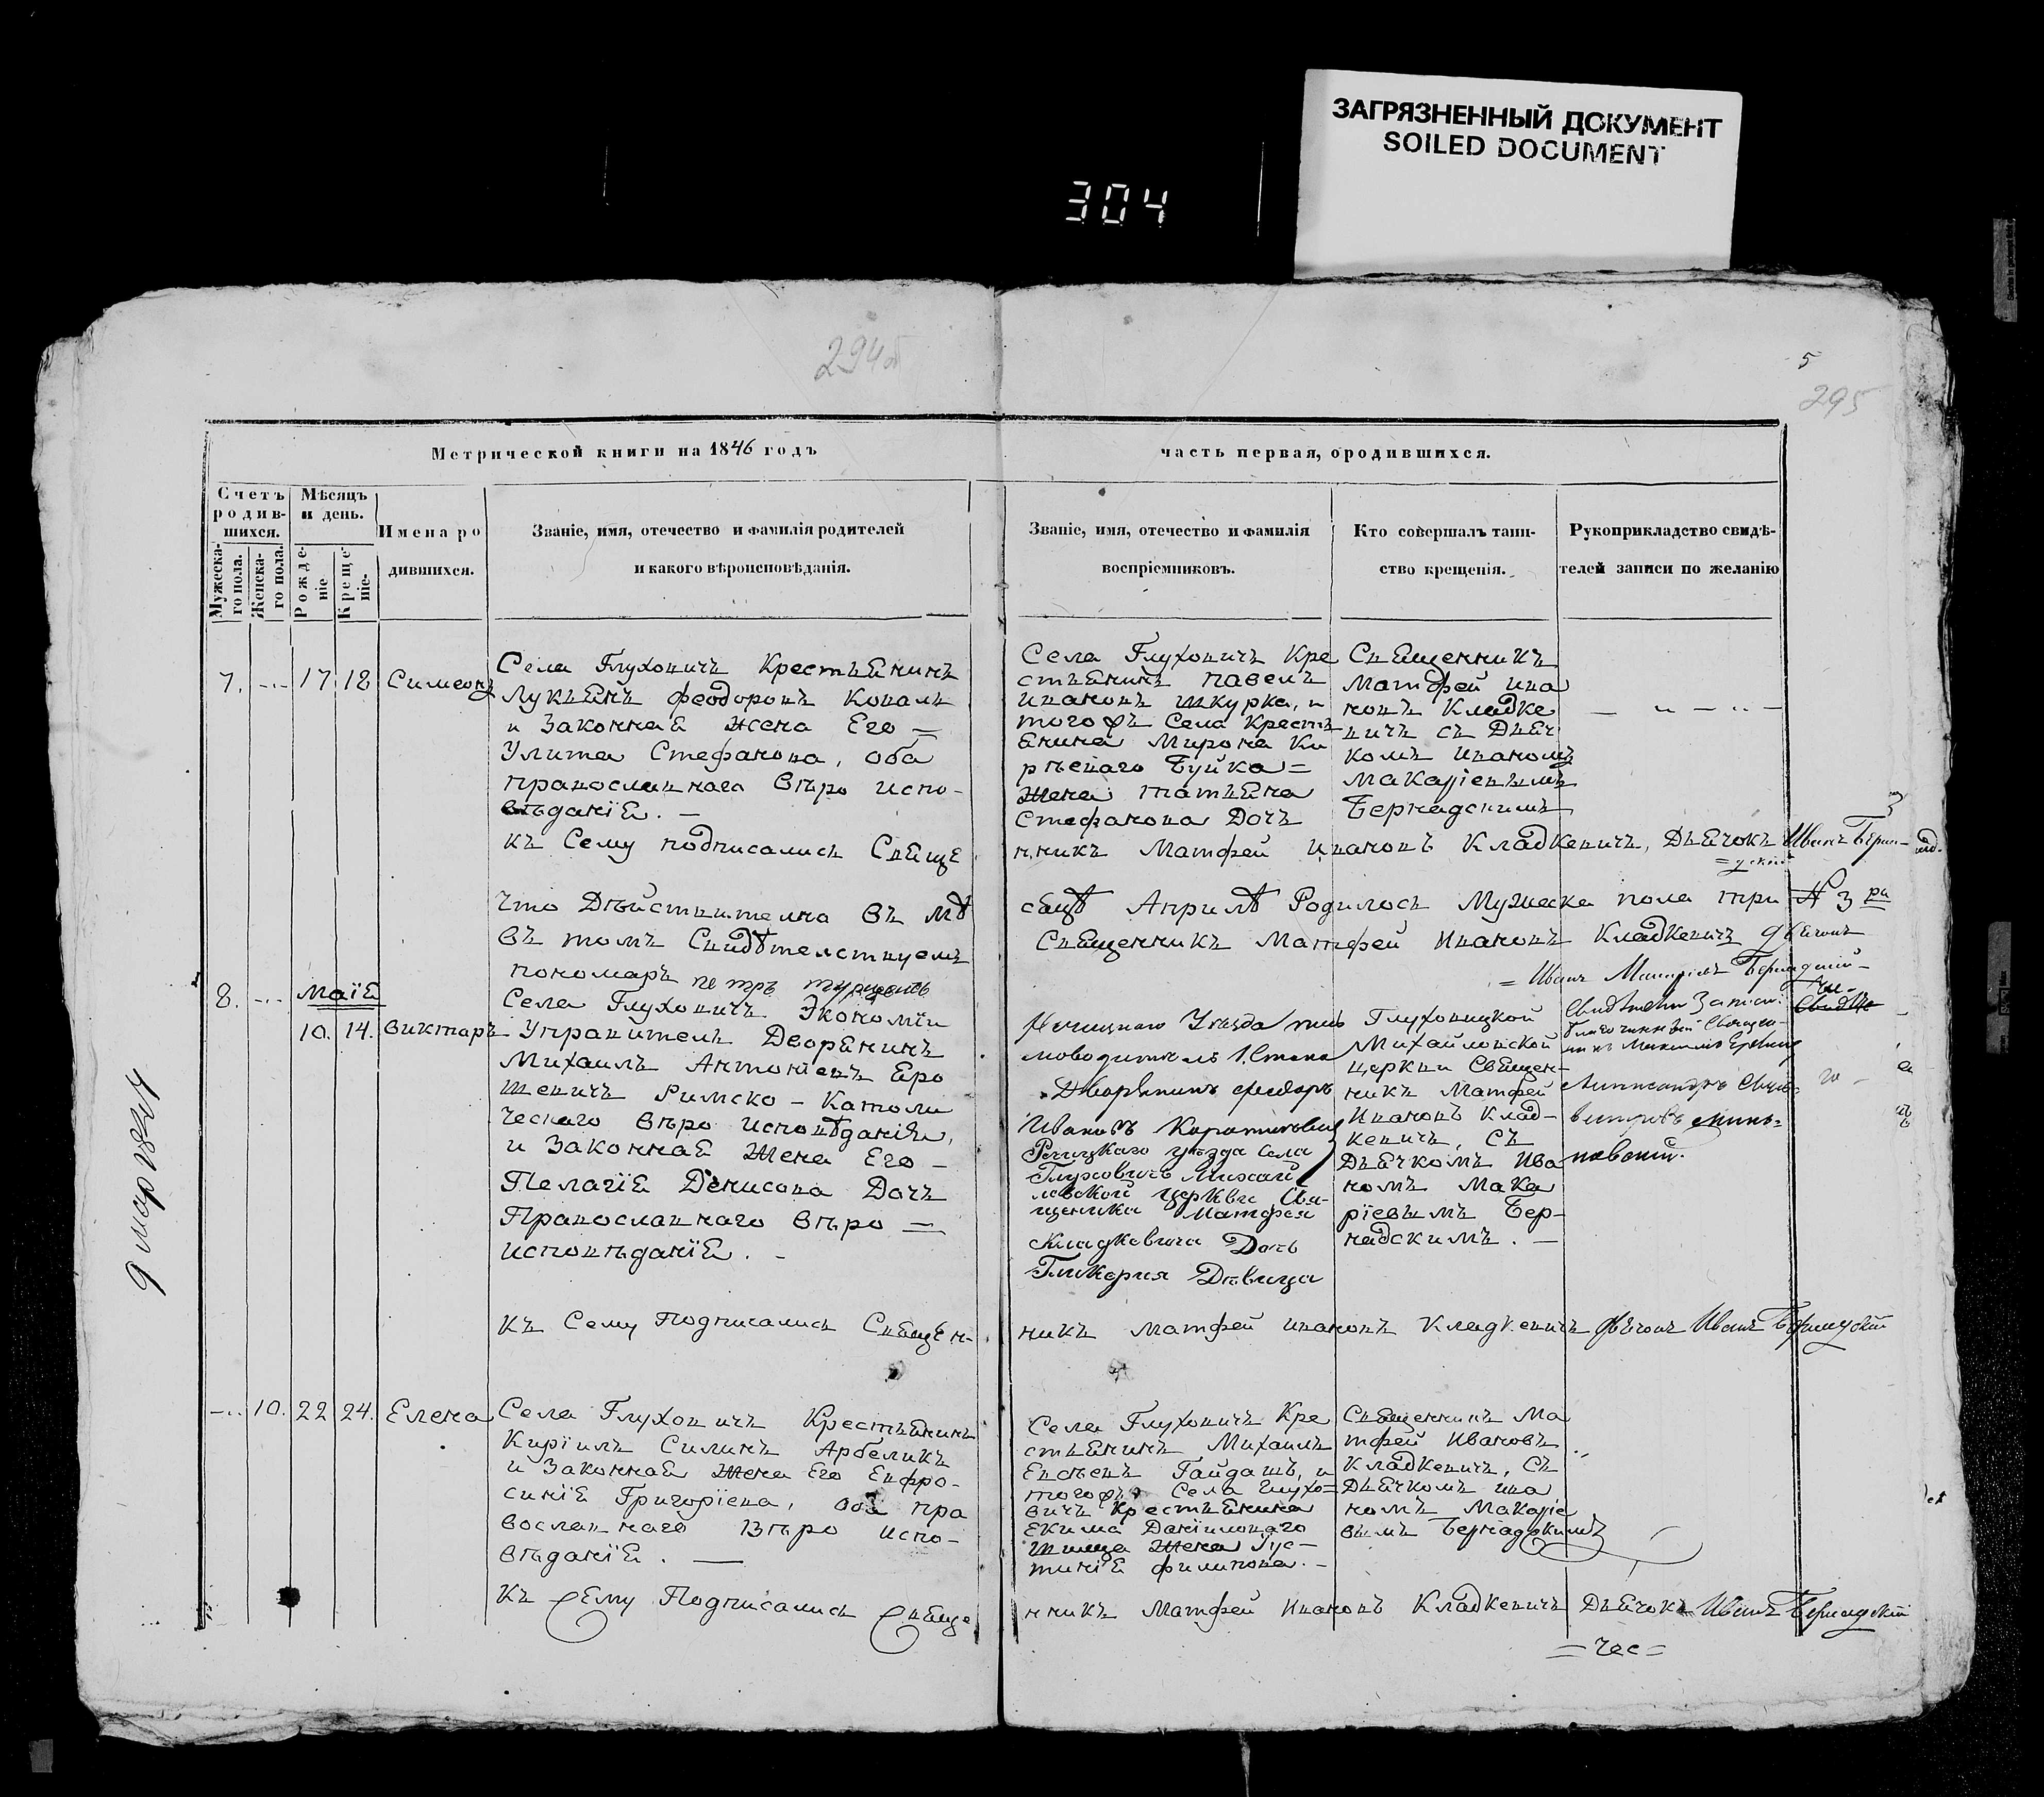 ЗАГРЯЗНЕННЫЙ ДОКУМЕНТ
SOILED DOCUMENT
304
294об
5
295
Метрической книги на 1846 годъ
часть первая, ородившихся.
Счетъ родив-шихся.
Мѣсяцъ и день.
Имена ро
дившихся.
Званіе, имя, отечество и фамилія родителей
и какого вѣроисповѣданія.
Званіе, имя, отечество и фамилія
воспріемниковъ.
Кто совершалъ таин-
ство крещенія.
Рукоприкладство свидѣ-
телей записи по желанію
Мужеска-го пола.
Женска-го пола.
Рожде-ніе
Креще-ніе.
7. 17 18 Симеонъ
Села Глуховичъ Крестьянинъ
Лукьянъ Феодоровъ Коваль
и Законная Жена Его =
Улита Стефанова, оба
православнаго вѣро испо-
вѣданія. —
Села Глуховичъ Кре
стьянинъ павелъ
ивановъ шкурка, и
тогожъ Села Кресть
янина Мирона Ки
рѣеваго Буйка =
Жена татьяна
Стефанова Дочь
Священникъ
Матфей ива
новъ Кладке
вичъ съ Дьяч
комъ иваномъ
Макаріевымъ
Бернадскимъ
къ Сему подписались Свяще
нникъ Матфей ивановъ Кладкевичъ, Дьячокъ Иванъ Берна-
=дскій
что Дѣйствителна въ мѣ
сяцѣ Априлѣ Родилось Мужеска пола три № 3 ри
въ томъ Свидѣтелствуемъ
Священникъ Матфей ивановъ Кладкевичъ дьячокъ
пономаръ петръ
= Иванъ Макаріевъ Бернадскій
8. Маія
10. 14. Викторъ
Села Глуховичъ Экономіи
Управитель Дворянинъ
Михаилъ Антоніевъ Еро
шевичъ Римско - Католи
ческаго вѣро исповѣданія,
и Законная Жена Его -
Пелагія Денисова Дочь
Православнаго вѣро —
исповѣданія. -
Уѣзда
Дворянинъ Федоръ
Ивановъ
Рѣчицкаго уѣзда Села
Глуховичъ Михай
ловской церкви Свя-
щенника Матфея
Кладкевича Дочь
Гликерия Дѣвица
Глуховицкой
Михайловской
церкви Священ-
никъ Матфей
Ивановъ Клад-
кевичъ, съ
Дьячкомъ Ива
номъ Мака
ріевымъ Бер-
надскимъ. —
къ Сему Подписались Священ-
никъ Матфей ивановъ Кладкевичъ дьячокъ Иванъ Бернадскій
10. 22 24. Елена
Села Глуховичъ Крестьянинъ
Киріилъ Силинъ Арбеликъ
и Законная Жена Его Евфро-
синія Григоріева, оба пра
вославнаго вѣро испо-
вѣданія. —
Села Глуховичъ Кре
стьянинъ Михаилъ
Евсѣевъ Гайдашъ, и
тогожъ Села Глухо=
вичъ Крестьянина
Екима Даніиловаго
Жена Іус-
тинія филипова. -
Священникъ Ма
тфей Ивановъ
Кладкевичъ, съ
Дьячкомъ ива
номъ Макаріе
вымъ Бернадскимъ
къ Сему Подписались Свяще
нникъ Матфей Ивановъ Кладкевичъ Дьячокъ Иванъ Бернадскій
= чес =